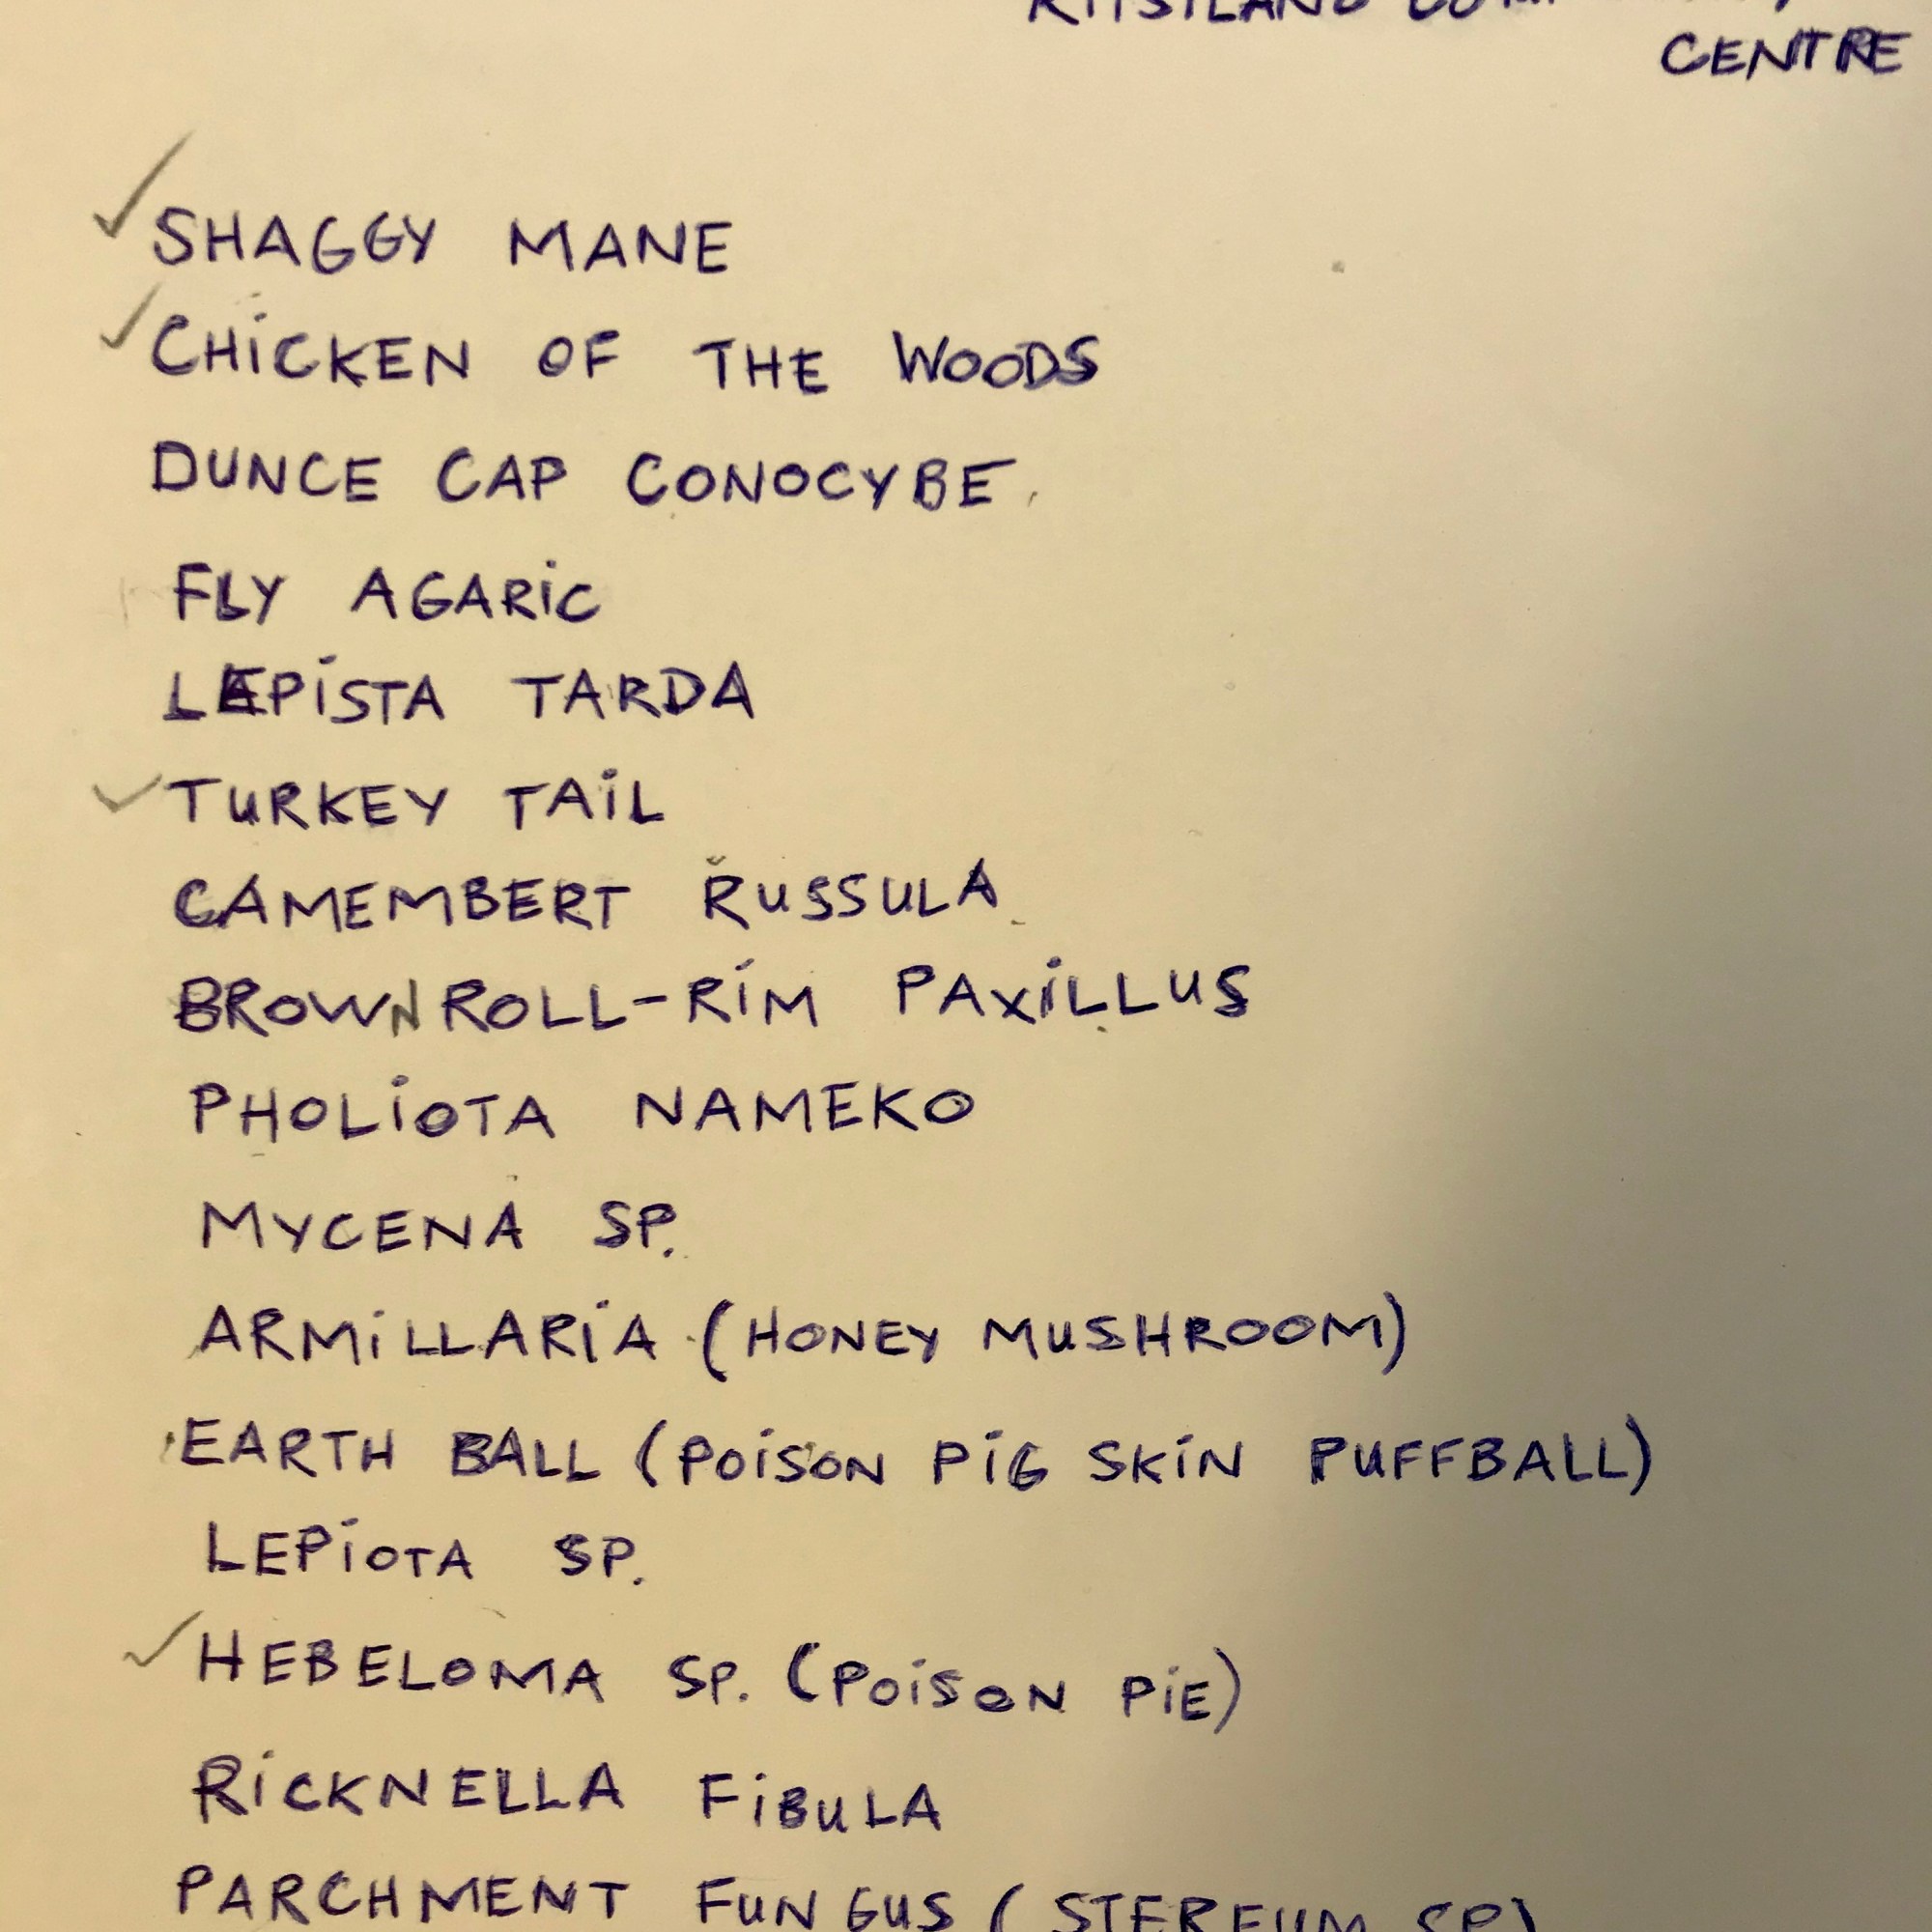 CENTRE
SHAGGY MANE
CHICKEN OF THE WOODS
DUNCE CAP CONOCYBE
FLY AGARIC
LEPISTA TARDA
TURKEY TAIL
CAMEMBERT RUSSULA
BROWN ROLL-RIM PAXILLUS
PHOLIOTA NAMEKO
MYCENA SP.
ARMILLARIA (HONEY MUSHROOM)
EARTH BALL (POISON PIG SKIN PUFFBALL)
LEPIOTA SP.
HEBELOMA SP. (POISON PIE)
RICKNELLA FIBULA
PARCHMENT FUNGUS (STEREUM SP)